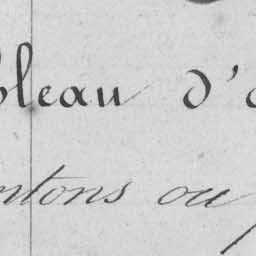 bleau d'a
ntons ou